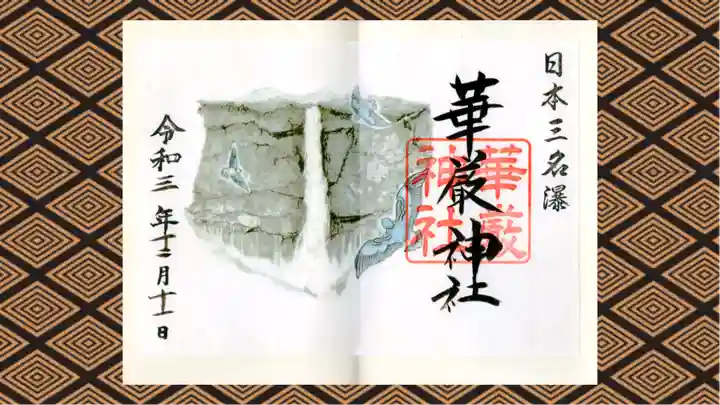 日本三名瀑
華厳神社
華厳
神社
令和三年十二月十一日